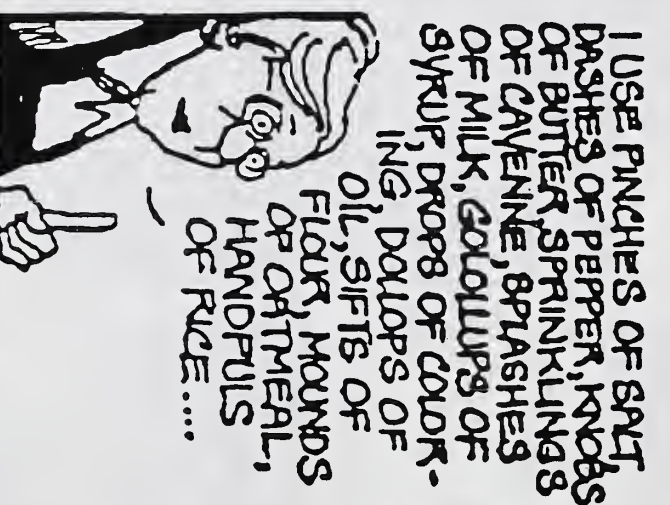 I USE PINCHES OF SALT
DASHES OF PEPPER, KNOBS
OF BUTTER, SPRINKLINGS
OF CAYENNE, SPLASHES
OF MILK, GOLOLLUPS OF
SYRUP, DROPS OF COLOR-
ING, DOLLOPS OF
OIL, SIFTS OF
FLOUR, MOUNDS
OF OATMEAL,
HANDFULS
OF RICE....